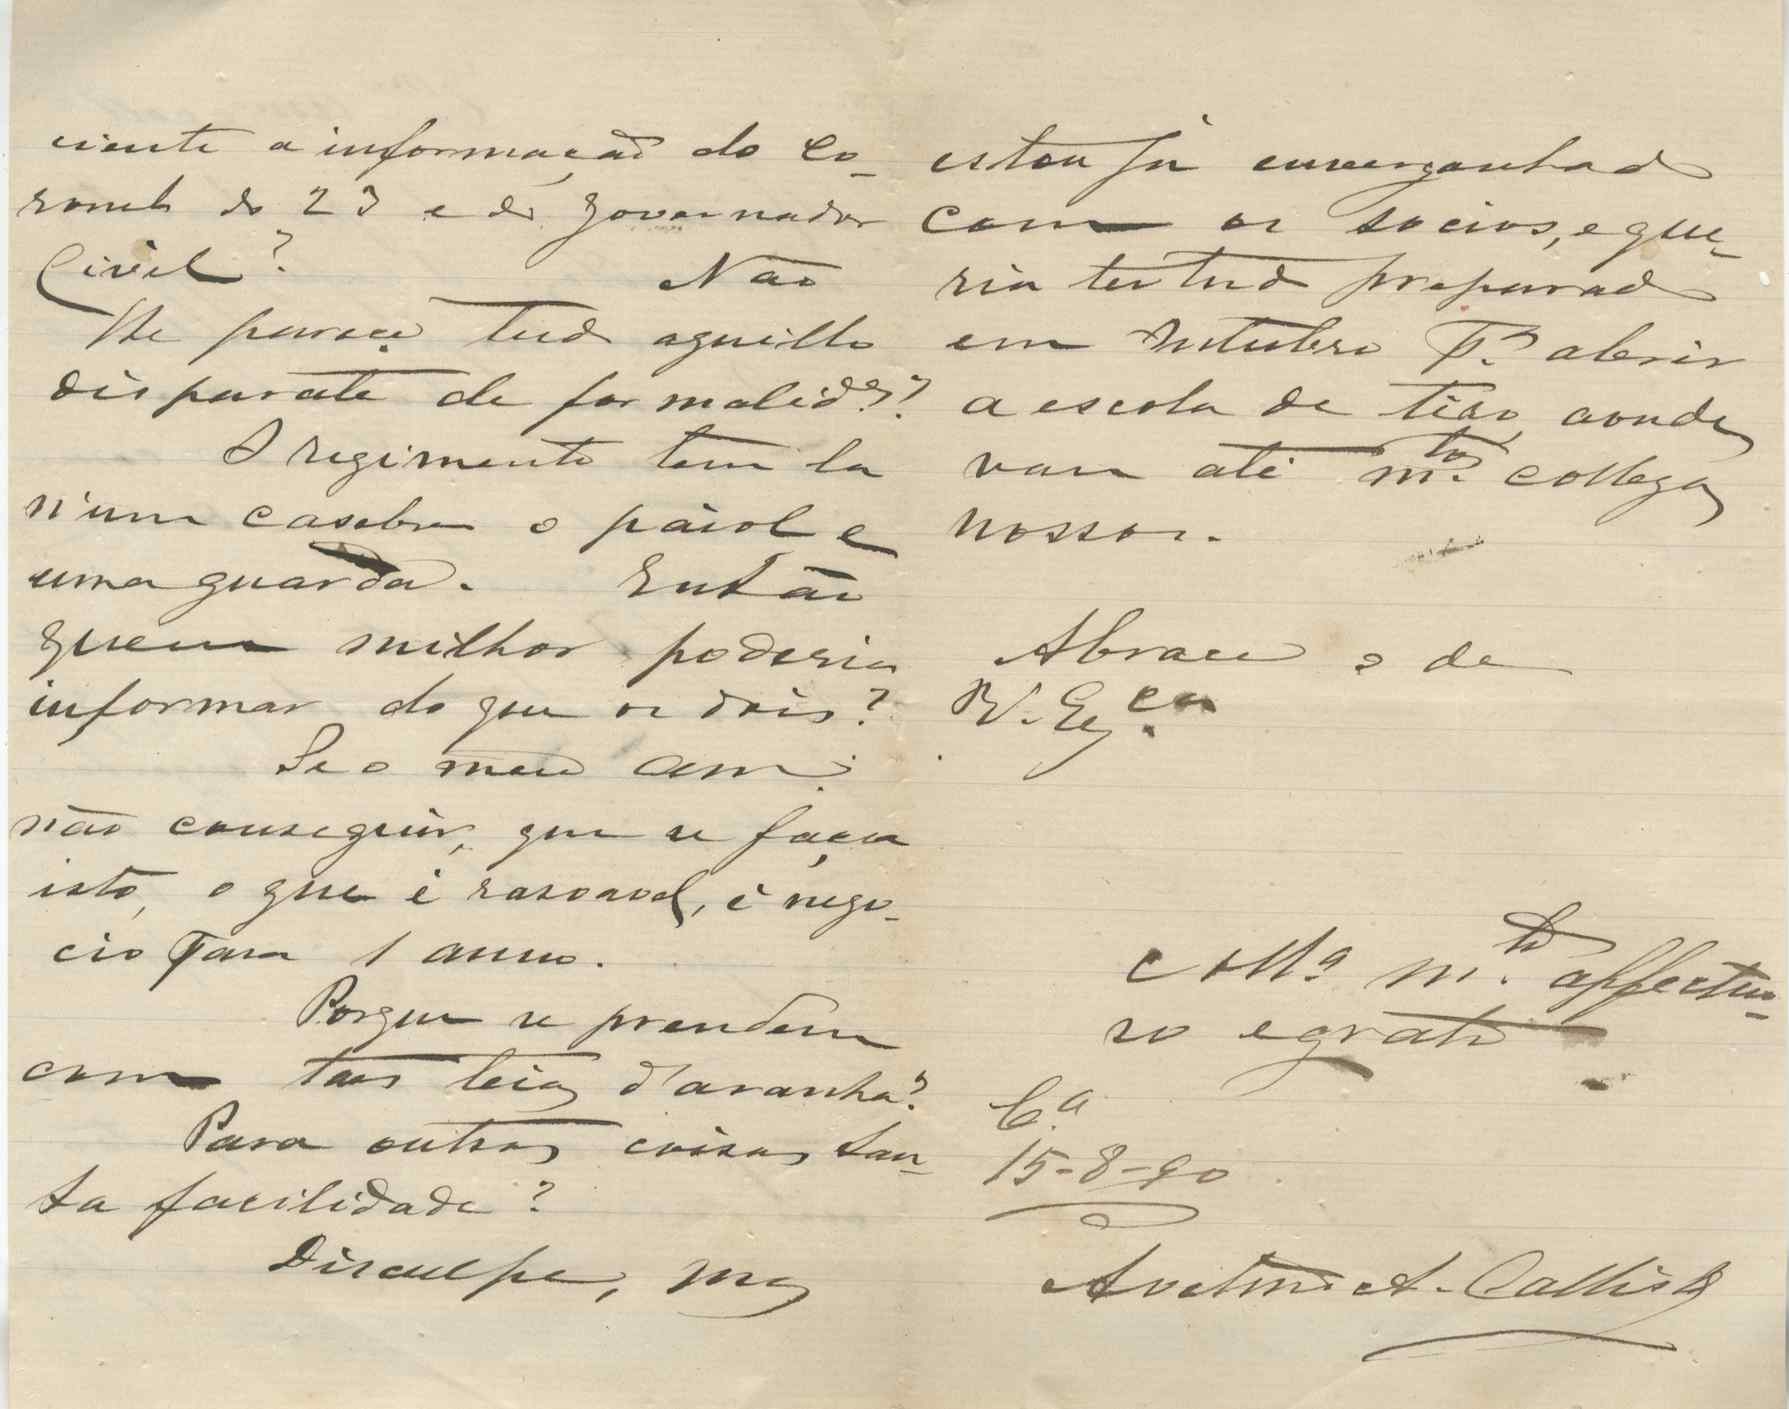 ciente a informação do Co-
ronel do 23 e do Governador
Civil?    Não
lhe parece tudo aquillo
disparate de formalid.es?
O regimento tem la
n'um casebre o paiol e
uma guarda.    Então
quem milhor poderia
informar do que os dois?
Se o meu am.º
não conseguir, que se faça
isto, o que é rasoavel, é nego-
cio para 1 anno.
Porque se prendem
com taes teias d'aranha?
Para outras coisas tan-
ta facilidade?
Disculpe, mas
estou já envergonhado
com os socios, e que-
ria ter tudo preparado
em Outubro p.ª abrir
a escola de tiro, aonde
vam até m.tos collegas
nossos.
Abrace o de
V. Ex.cia
Coll.ª m.to affectuo-
so e grato
C.ª
15-8-90
Avelino A. Callisto